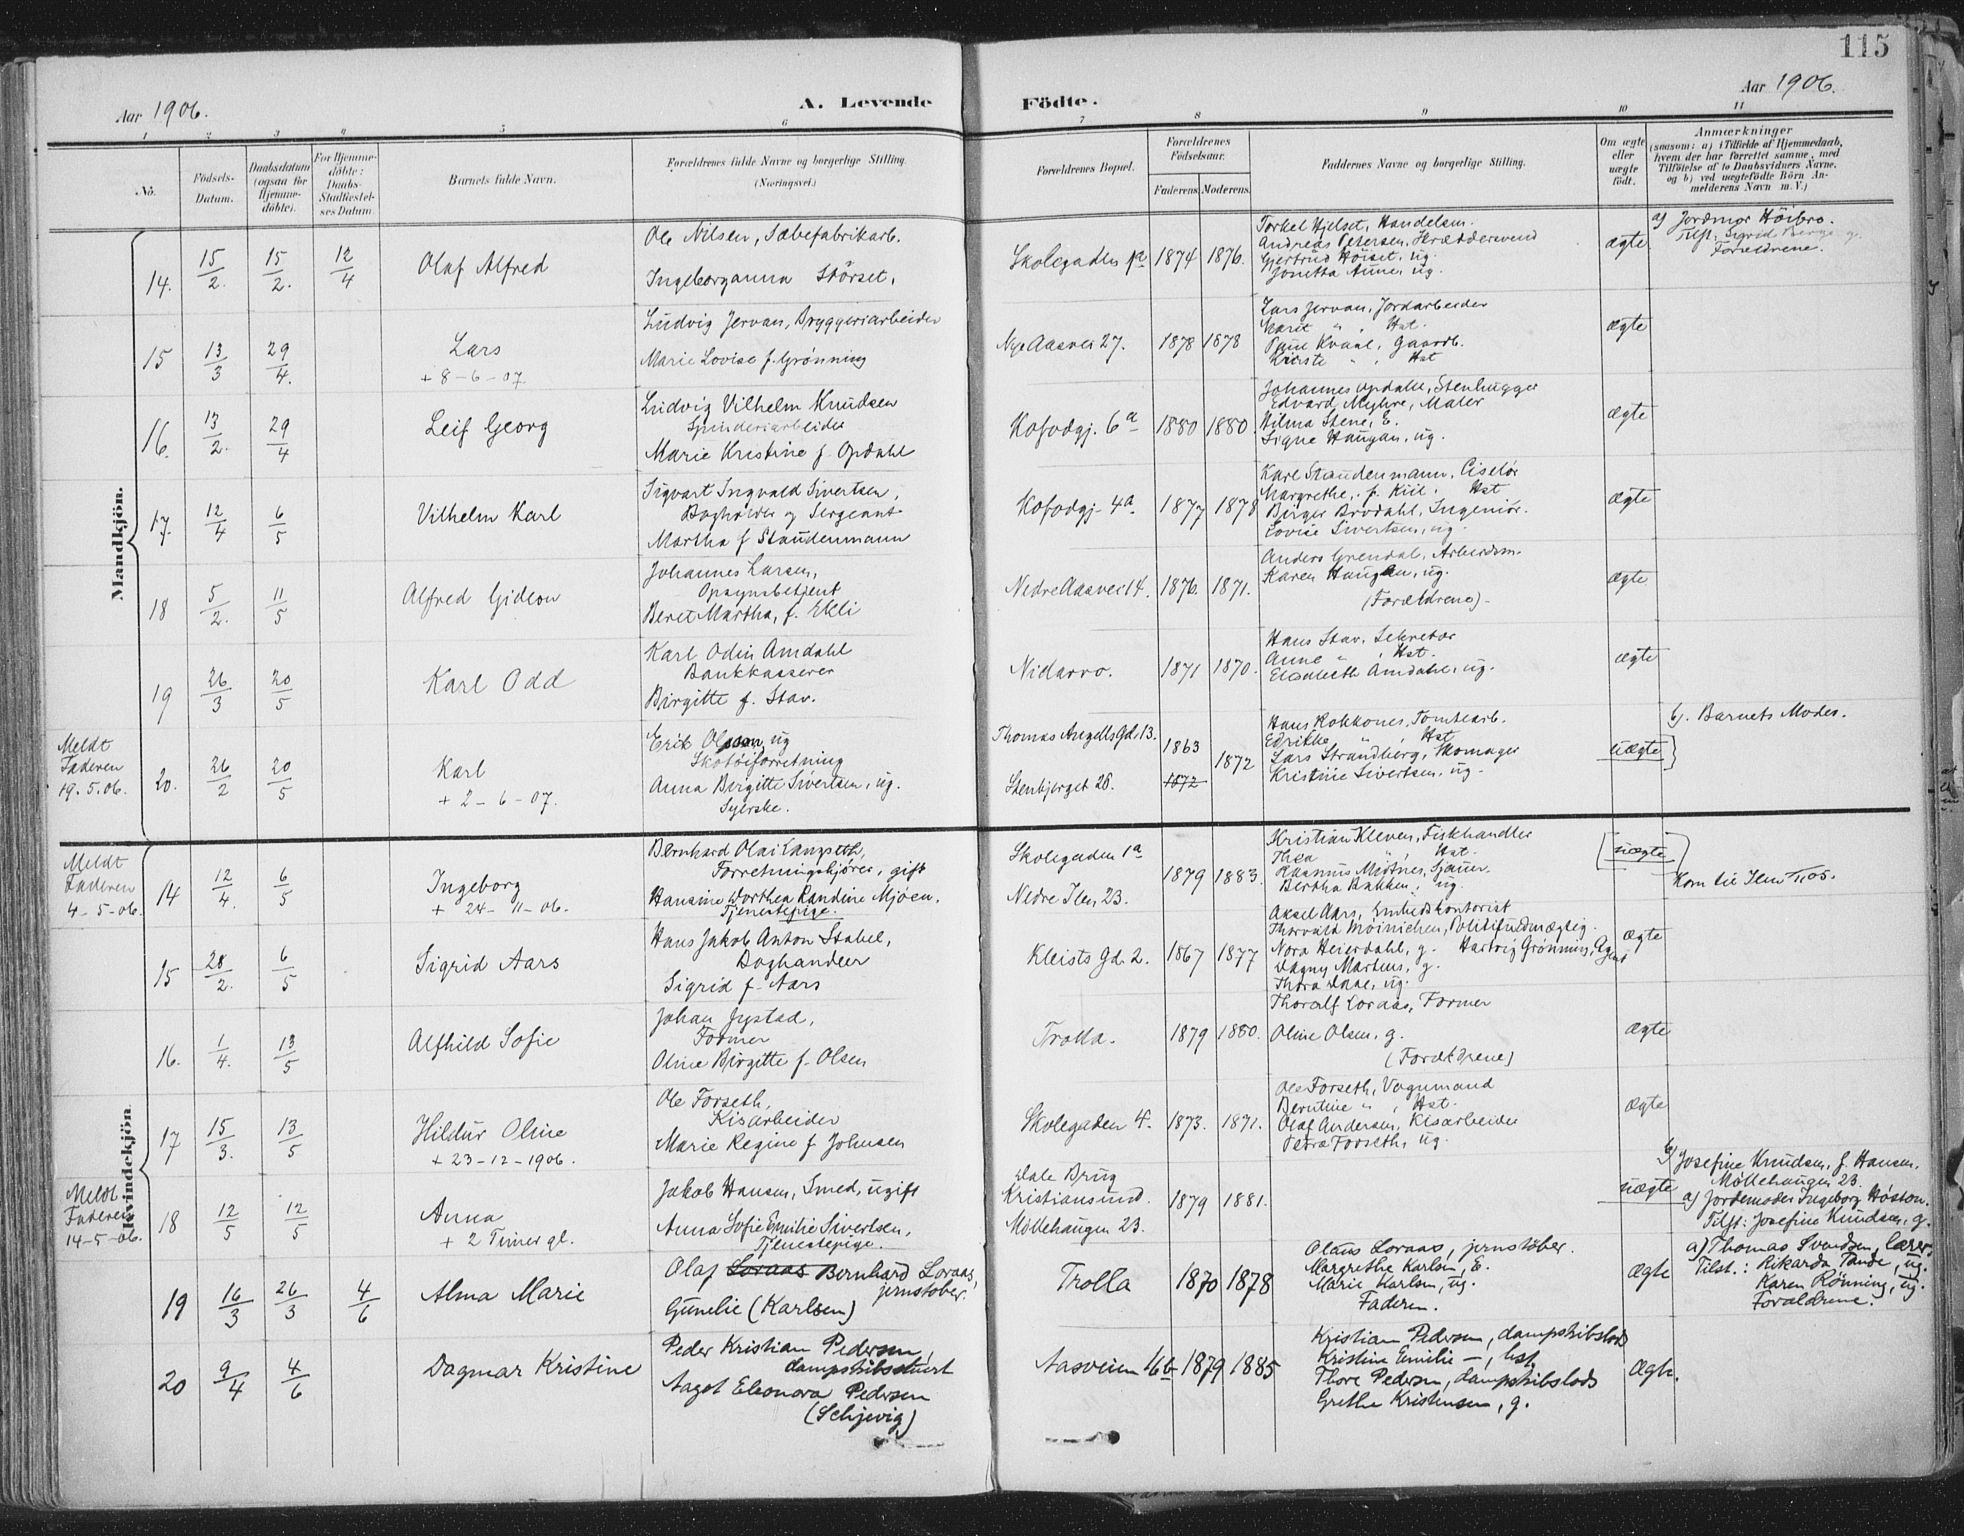 115
Aar 1906.
A. Levende
Födte.
Aar 1906.
1 2 3 4 5 6 7 8 9 10 11
No.
Födsels-Datum.
Daabsdatum (ogsaa for Hjemme-döbte).
For Hjemme-döbte: Daabs-Stadfæstel-ses Datum.
Barnets fulde Navn.
Forældrenes fulde Navne og borgerlige Stilling.
(Næringsvei.)
Forældrenes Bopæl.
Forældrenes Födselsaar.
Faderens. Moderens.
Faddernes Navne og borgerlige Stilling.
Om ægte eller uægte födt.
Anmærkninger
(saasom: a) i Tilfælde af Hjemmedaab, hvem der har forrettet samme, med Tilföielse af to Daabsvidners Navne, og b) ved uægtefödte Börn An-melderens Navn m. V.)
Mandkjön.
14. 15/2. 15/2. 12/4 Olaf Alfred
Ole Nilsen, Sæbefabrikarb.
Ingeborganna Störset.
Skolegaden 1874 1876.
Torkel Hjelset, Handelsm.
Andreas Petersen, Skræddersvend
Gertrud Höiset, ug.
Jonetta Aune, ug.
ægte
a) Jordmor Höibro.
Tilst: Sigrid Berge g.
Forældrene.
15 13/3 29/4. Lars
+ 8-6-07.
Ludvig Jervan, Bryggeriarbeider
Marie Lovise f. Grönning
Nye Aasvei 27. 1878 1878
Lars Jervan, Jordarbeider
Marit " , Hst.
Kvaal, Gaardb.
" , Hst
ægte
16. 13/2. 29/4 Leif Georg
Ludvig Vilhelm Knudsen
Spinderiarbeider
Marie Kristine f. Opdahl
Kofodgj. 6a 1880 1880.
Johannes Opdahl, Stenhugger
Edvard Myhre, Maler
Hilma Stene, E.
Signe Haugan, ug.
ægte
17. 12/4 6/5 Vilhelm Karl
Sigvart Ingvald Sivertsen,
Bogholder og Sergeant
Martha f Staudenmann
Kofodgj. 4a. 1877 1878
Karl Staudenmann, Ciselör
Margrethe, f. Kiil. Hst
Birger Brodahl, Ingeniör.
Lovise Sivertsen, ug.
ægte
18 5/2. 11/5 Alfred Gideon
Johannes Larsen,
Opsynsbetjent
Beret Martha, f. Ekli
Nedre Aasvei 14. 1876. 1871.
Anders Grendal, Arbeidsm.
Karen Haugen, ug.
(Forældrene)
ægte
19 26/3 20/5 Karl Odd
Karl Odin Amdahl
Bankkasserer
Birgitte f. Stav.
Nidarvo. 1871 1870.
Hans Stav, Sekretær
Anne " , Hst.
Elisabeth Amdahl, ug.
ægte
Meldt
Faderen
19.5.06.
20. 26/2 20/5 Karl
+ 2-6-07.
Erik Olsson, ug
Skotöiforretning
Anna Birgitte Sivertsen, ug.
Syerske.
Thomas Angells Gd. 13.
Stenbjerget 28.
1863
1872
1872
Hans Kokkones, Tomtearb.
Edrikke " Hst
Lars Strandberg, Skomager
Kristine Sivertsen, ug.
uægte
b). Barnets Moder.
Kvindekjön
Meldt
Faderen
4-5-06.
14 12/4. 6/5 Ingeborg
+ 24-11-06.
Bernhard Olai Langseth,
Forretningskjörer, gift
Hansine Dorthea Randine Mjöen.
Tjenestepige.
Skolegaden 1a
Nedre Ilen 23.
1879 1883.
Kristian Kleven, Fiskhandler
Thea " Hst.
Rasmus Midtnes, Sjauer
Bertha Bakken, ug.
uægte
Kom til Ilen 1/1 05.
15 28/2. 6/5 Sigrid Aars
Hans Jakob Anton Stabel,
Boghandler
Sigrid f. Aars
Kleists Gd. 2. 1867 1877
Aksel Aars, Embedskontorist
Thorvald Moinichen, Politifuldmægtig.
Nora Heierdahl, g. Hartvig Grönning, Agent
Dagny Martens, g.
Thora Daae, ug.
ægte
16. 1/4. 13/5 Alfhild Sofie
Johan Jystad,
Former
Oline Birgitte f. Olsen
Trolla. 1879 1880.
Thoralf Loraas, Former
Oline Olsen, g.
(Forældrene)
ægte
17 15/3. 13/5 Hildur Oline
+ 23-12-1906.
Ole Forseth,
Kisarbeider
Marie Regine f Johnsen
Skolegaden 4. 1873. 1871.
Ole Forseth, Vognmand
Berntine " , Hst.
Olaf Andersen, Kisarbeider
Petra Forseth, ug.
ægte
Meldt
Faderen
14-5-06.
18 12/5 12/5 Anna
+ 2 Timer gl.
Jakob Hansen, Smed, ugift
Anna Sofie Emilie Sivertsen,
Tjenestepige.
Dale Brug
Kristiansund.
Möllehaugen 23.
1879 1881.
uægte
b) Josefine Knudsen, f. Hansen.
Möllehaugen 23.
a) Jordemoder Ingeborg Höston.
Tilst: Josefine Knudsen, g.
19 16/3 26/3 4/6 Alma Marie
Olaf Loraas Bernhard Loraas,
jernstöber.
Gunelie (Karlsen)
Trolla 1870 1878
Olaus Loraas, jernstöber.
Margrethe Karlsen, E.
Marie Karlsen, ug.
Faderen.
ægte
a) Thomas Svendsen, lærer.
Tilst.: Rikarda Tande, ug.
Karen Rönning, ug.
Forældrene.
20 9/4 4/6 Dagmar Kristine
Peder Kristian Pedersen,
dampskibsstuert
Aagot Eleonora Pedersen
(Schjevig)
Aasveien 16b 1879 1885
Kristian Pedersen, dampskibslods
Kristine Emilie —, hst.
Thore Pedersen, dampskibslods
Grethe Kristensen, g.
Ægte.